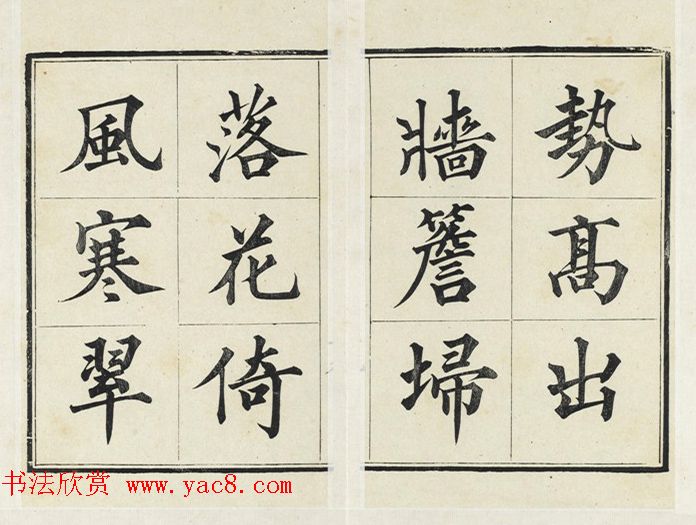 勢髙出
牆簷埽
落花倚
風寒翠
书法欣赏 www.yac8.com